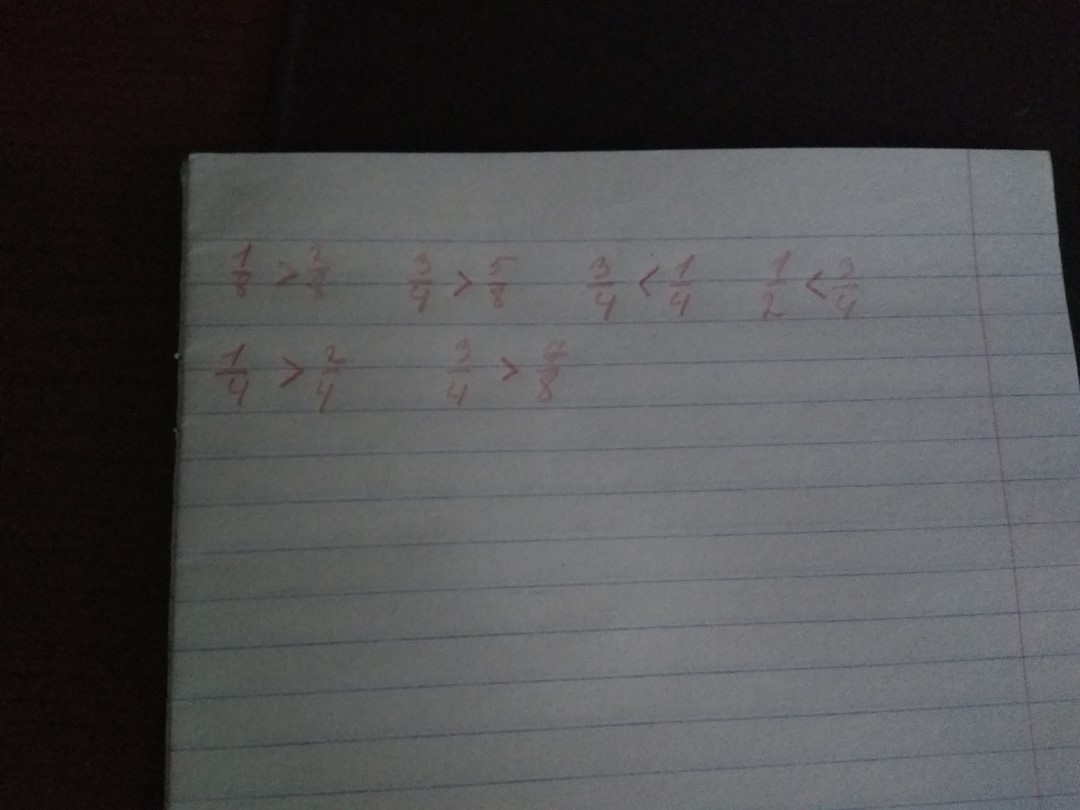 1/8 > 2/8 3/4 > 5/8 3/4 < 1/4 1/2 < 3/4
1/4 > 2/4 3/4 > 7/8